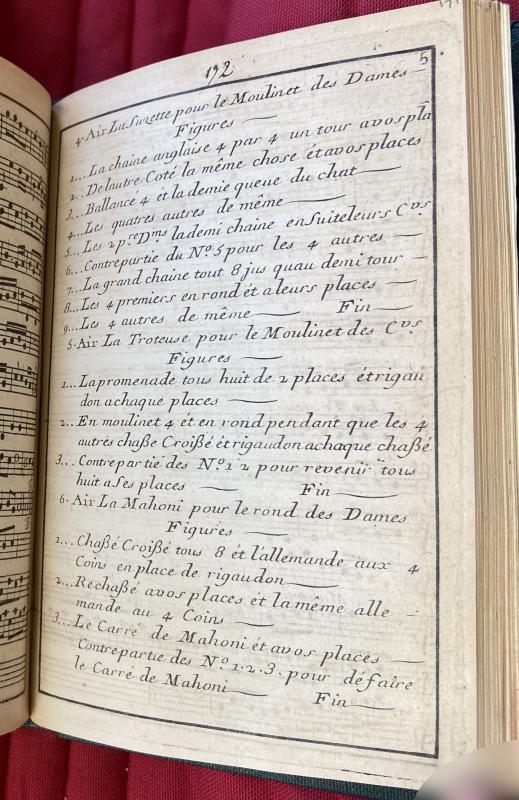 192
5
4. Air La Suzette pour le Moulinet des Dames
Figures
1... La chaine anglaise 4 par 4 un tour avos pla
2.. De lautre Coté la même chose ét avos places
3... Ballancé 4 ét la demie queue du chat
4... Les quatres autres de même
5... Les 2 p.re Dmes la demi chaine en Suite leurs Cvrs
6... Contrepartie du No. 5 pour les 4 autres
7... La grand chaine tout 8 jus quau demi tour
8... Les 4 premiers en rond ét aleurs places
9... Les 4 autres de même Fin
5. Air La Troteuse pour le Moulinet des Cvrs
Figures
1... La promenade tous huit de 2 places ét rigau
don achaque places
2... En moulinet 4 ét en rond pendant que les 4
autres chaßé Croißé ét rigaudon achaque chaßé
3... Contrepartie des No. 1 2 pour revenir tous
huit a Ses places Fin
6. Air La Mahoni pour le rond des Dames
Figures
1... Chaßé Croißé tous 8 ét l'allemande aux 4
Coins en place de rigaudon
2... Rechaßé avos places ét la même alle
mande au 4 Coins
3... Le Carré de Mahoni ét avos places
Contrepartie des No. 1. 2. 3. pour défaire
le Carré de Mahoni Fin